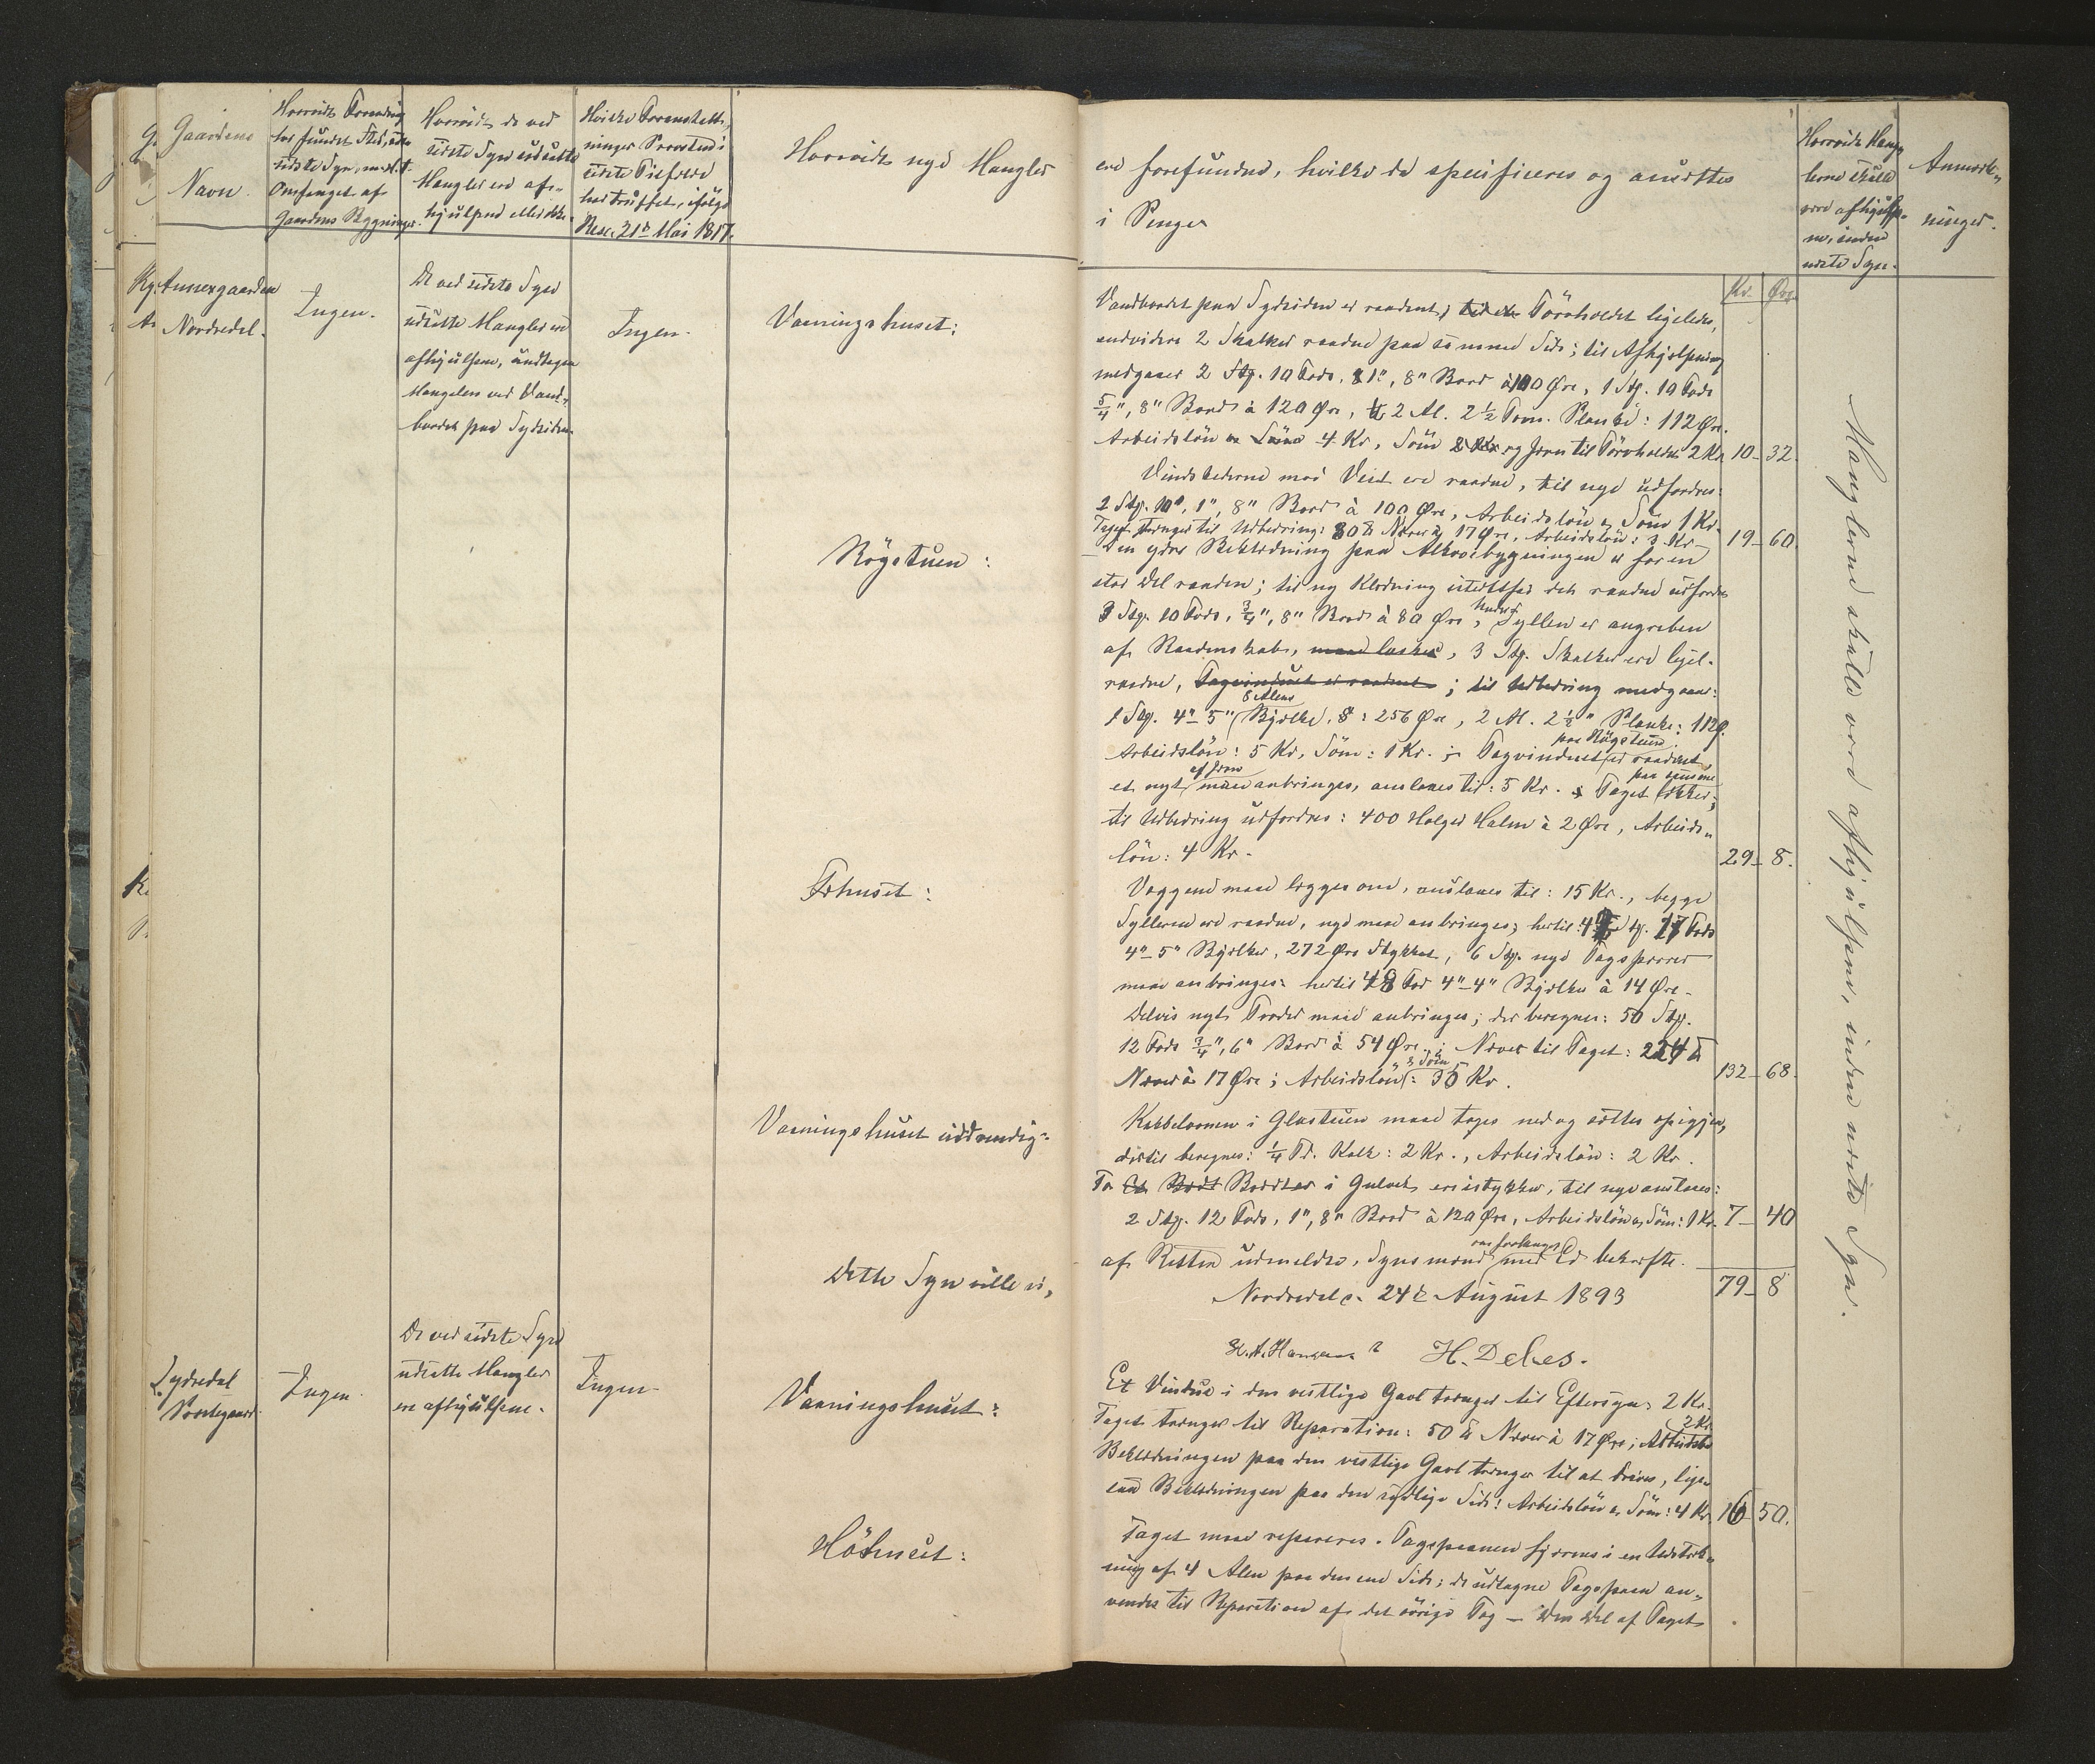 Gaardene
Navn.
Hvorvidt Forandring
har fundet Sted, siden
sidste Syn, med H. t.
Omfanget af
Gaardens Bygninger.
Hvorvidt de ved
sidste Syn udsatte
Mangler ere af-
hjulpne eller ikke.
Hvilke Foranstalt-
ninger Provsten i
sidste Tilfælde
har truffet, ifølge
Resc. 21de Mai 1817.
Hvorvidt nye Mangler
ere forefundne, hvilke da specificeres og ansættes
i Penge
Hvorvidt Mang-
lerne skulle
være afhjulp-
ne, inden
næste Syn.
Anmærk-
ninger.
Kr. Øre
Annexgaarden
Nordredal.
Ingen.
De ved sidste Syn
udsatte Mangler ere
afhjulpne, undtagen
Mangelen ved Vand-
bordet paa Sydsiden.
Ingen.
Vaaningshuset:
Vandbordet paa Sydsiden er raadent, Törvholdet ligeledes,
endvidere 2 Skalker raadne paa samme Side; til Afhjelpning
medgaaer 2 Stk. 10 Fods, 1", 8" Bord à 100 Øre, 1 Stk. 10 Fods
5/4", 8" Bord à 120 Øre, 2 Al. 2 1/2 Tom. Planke: 112 Øre.
Arbeidslön 4 Kr, Söm og Jern til Törvholdet 2 Kr. 10 - 32.
Vindskederne mod Vest ere raadne, til nye udfordres:
2 Stk. 10', 1", 8" Bord à 100 Øre, Arbeidslön og Söm 1 Kr.
Taget trænger til Udbedring: 80 ℔ Næver à 17 Øre, Arbeidslön: 3 Kr 19 - 60.
Rögstuen:
Den ydre Beklædning paa Alkovebygningen er for en
stor Del raaden; til ny Klædning istedetfor den raadne udfordres
3 Stk. 10 Fods, 3/4", 8" Bord à 80 Øre, Syllen er angreben
af Raadenskab, 3 Stk. Skalker ere ligel.
raadne, Tagvinduet er raadent; til Udbedring medgaaer:
1 Stk. 4"-5" 8 Alens Bjælke: 256 Øre, 2 Al. 2 1/2" Planke: 112 Ø.
Arbeidslön: 5 Kr, Söm: 1 Kr. Tagvinduet paa Rögstuen er raadent,
et nyt af Jern maa anbringes, anslaaes til: 5 Kr. Taget paa samme lækker;
til Udbedring udfordres: 400 Halger Halm à 2 Øre, Arbeids-
lön: 4 Kr. 29 - 8.
Fehuset:
Væggene maa lægges om, anslaaes til: 15 Kr., begge
Syllerne ere raadne, nye maa anbringes; hertil 4 Stk. 17 Fods
4"-5" Bjælker, 272 Øre Stykket, 6 Stk. nye Tagsperrer
maa anbringes: hertil 48 Fod 4"-4" Bjælker à 14 Øre.
Delvis nyt Troder maa anbringes; der beregnes: 50 Stk.
12 Fods 3/4", 6" Bord à 54 Øre; Næver til Taget: 224 ℔
Næver à 17 Øre; Arbeidslön & Söm: 35 Kr. 132 - 68.
Vaaningshuset udvendig:
Kakkelovnen i Glastuen maa tages ned og sættes op igjen,
dertil beregnes: 1/4 Td. Kalk: 2 Kr., Arbeidslön: 2 Kr.
To Bordter i Gulvet ere istykker, til nye anslaaes:
2 Stk. 12 Fods, 1", 8" Bord à 120 Øre, Arbeidslön og Söm: 1 Kr. 7 - 40
Dette Syn ville vi,
af Retten udmeldte, Synsmænd om forlanges med Ed bekræfte.
79 - 8
Nordredal d. 24de August 1893
H. Dekes.
Manglerne skulle være afhjulpne, inden næste Syn.
Sydredal
Præstegaard.
Ingen.
De ved sidste Syn
udsatte Mangler
ere afhjulpne.
Ingen.
Vaaningshuset:
Et Vindue i den vestlige Gavl trænger til Eftersyn: 2 Kr.
Taget trænger til Reparation: 50 ℔ Næver à 17 Øre; Arbeidslön 2 Kr.
Beklædningen paa den vestlige Gavl trænger til at drives, lige-
saa Beklædningen paa den sydlige Side: Arbeidslön og Söm: 4 Kr. 16 - 50.
Höhuset:
Taget maa repareres. Tagspaanen fjernes i en Udstræk-
ning af 4 Alen paa den ene Side; de udtagne Tagspaan an-
vendes til Reparation af det övrige Tag — Den Del af Taget